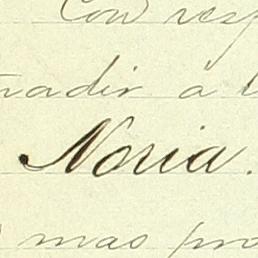 Con resp
nadir á l
Noria.
mas pro